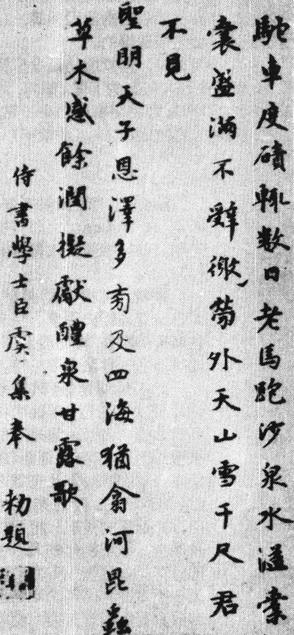 駝車度磧輒數日老馬跑沙泉水溢橐
囊盛滿不辤徼勞外天山雪千尺君
不見
聖明天子恩澤多旁及四海猶翕河昆蟲
草木感餘潤擬獻醴泉甘露歌
侍書學士臣虞集奉 勑題